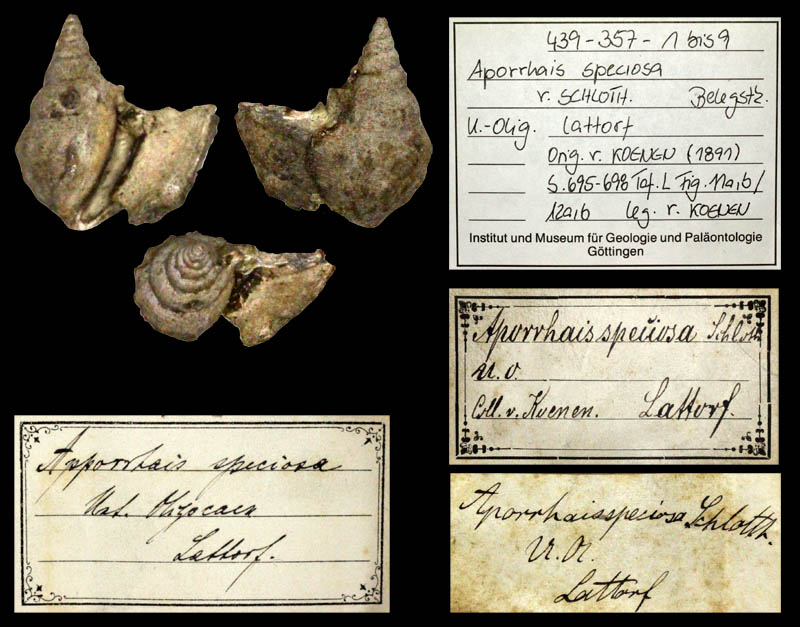 439-357-1 bis 9
Aporrhais speciosa
v. SCHLOTH. Belegstk.
U.-Olig. Lattorf
Orig. v. KOENEN (1891)
S. 695-698 Taf. L Fig. 11a,b/
12a,b leg. v. KOENEN
Institut und Museum für Geologie und Paläontologie
Göttingen
Aporrhais speciosa Schloth
U. O.
Coll. v. Koenen. Lattorf.
Apporrhais speciosa
Unt. Oligocaen
Lattorf.
Aporrhais speciosa Schloth.
U. Ol.
Lattorf